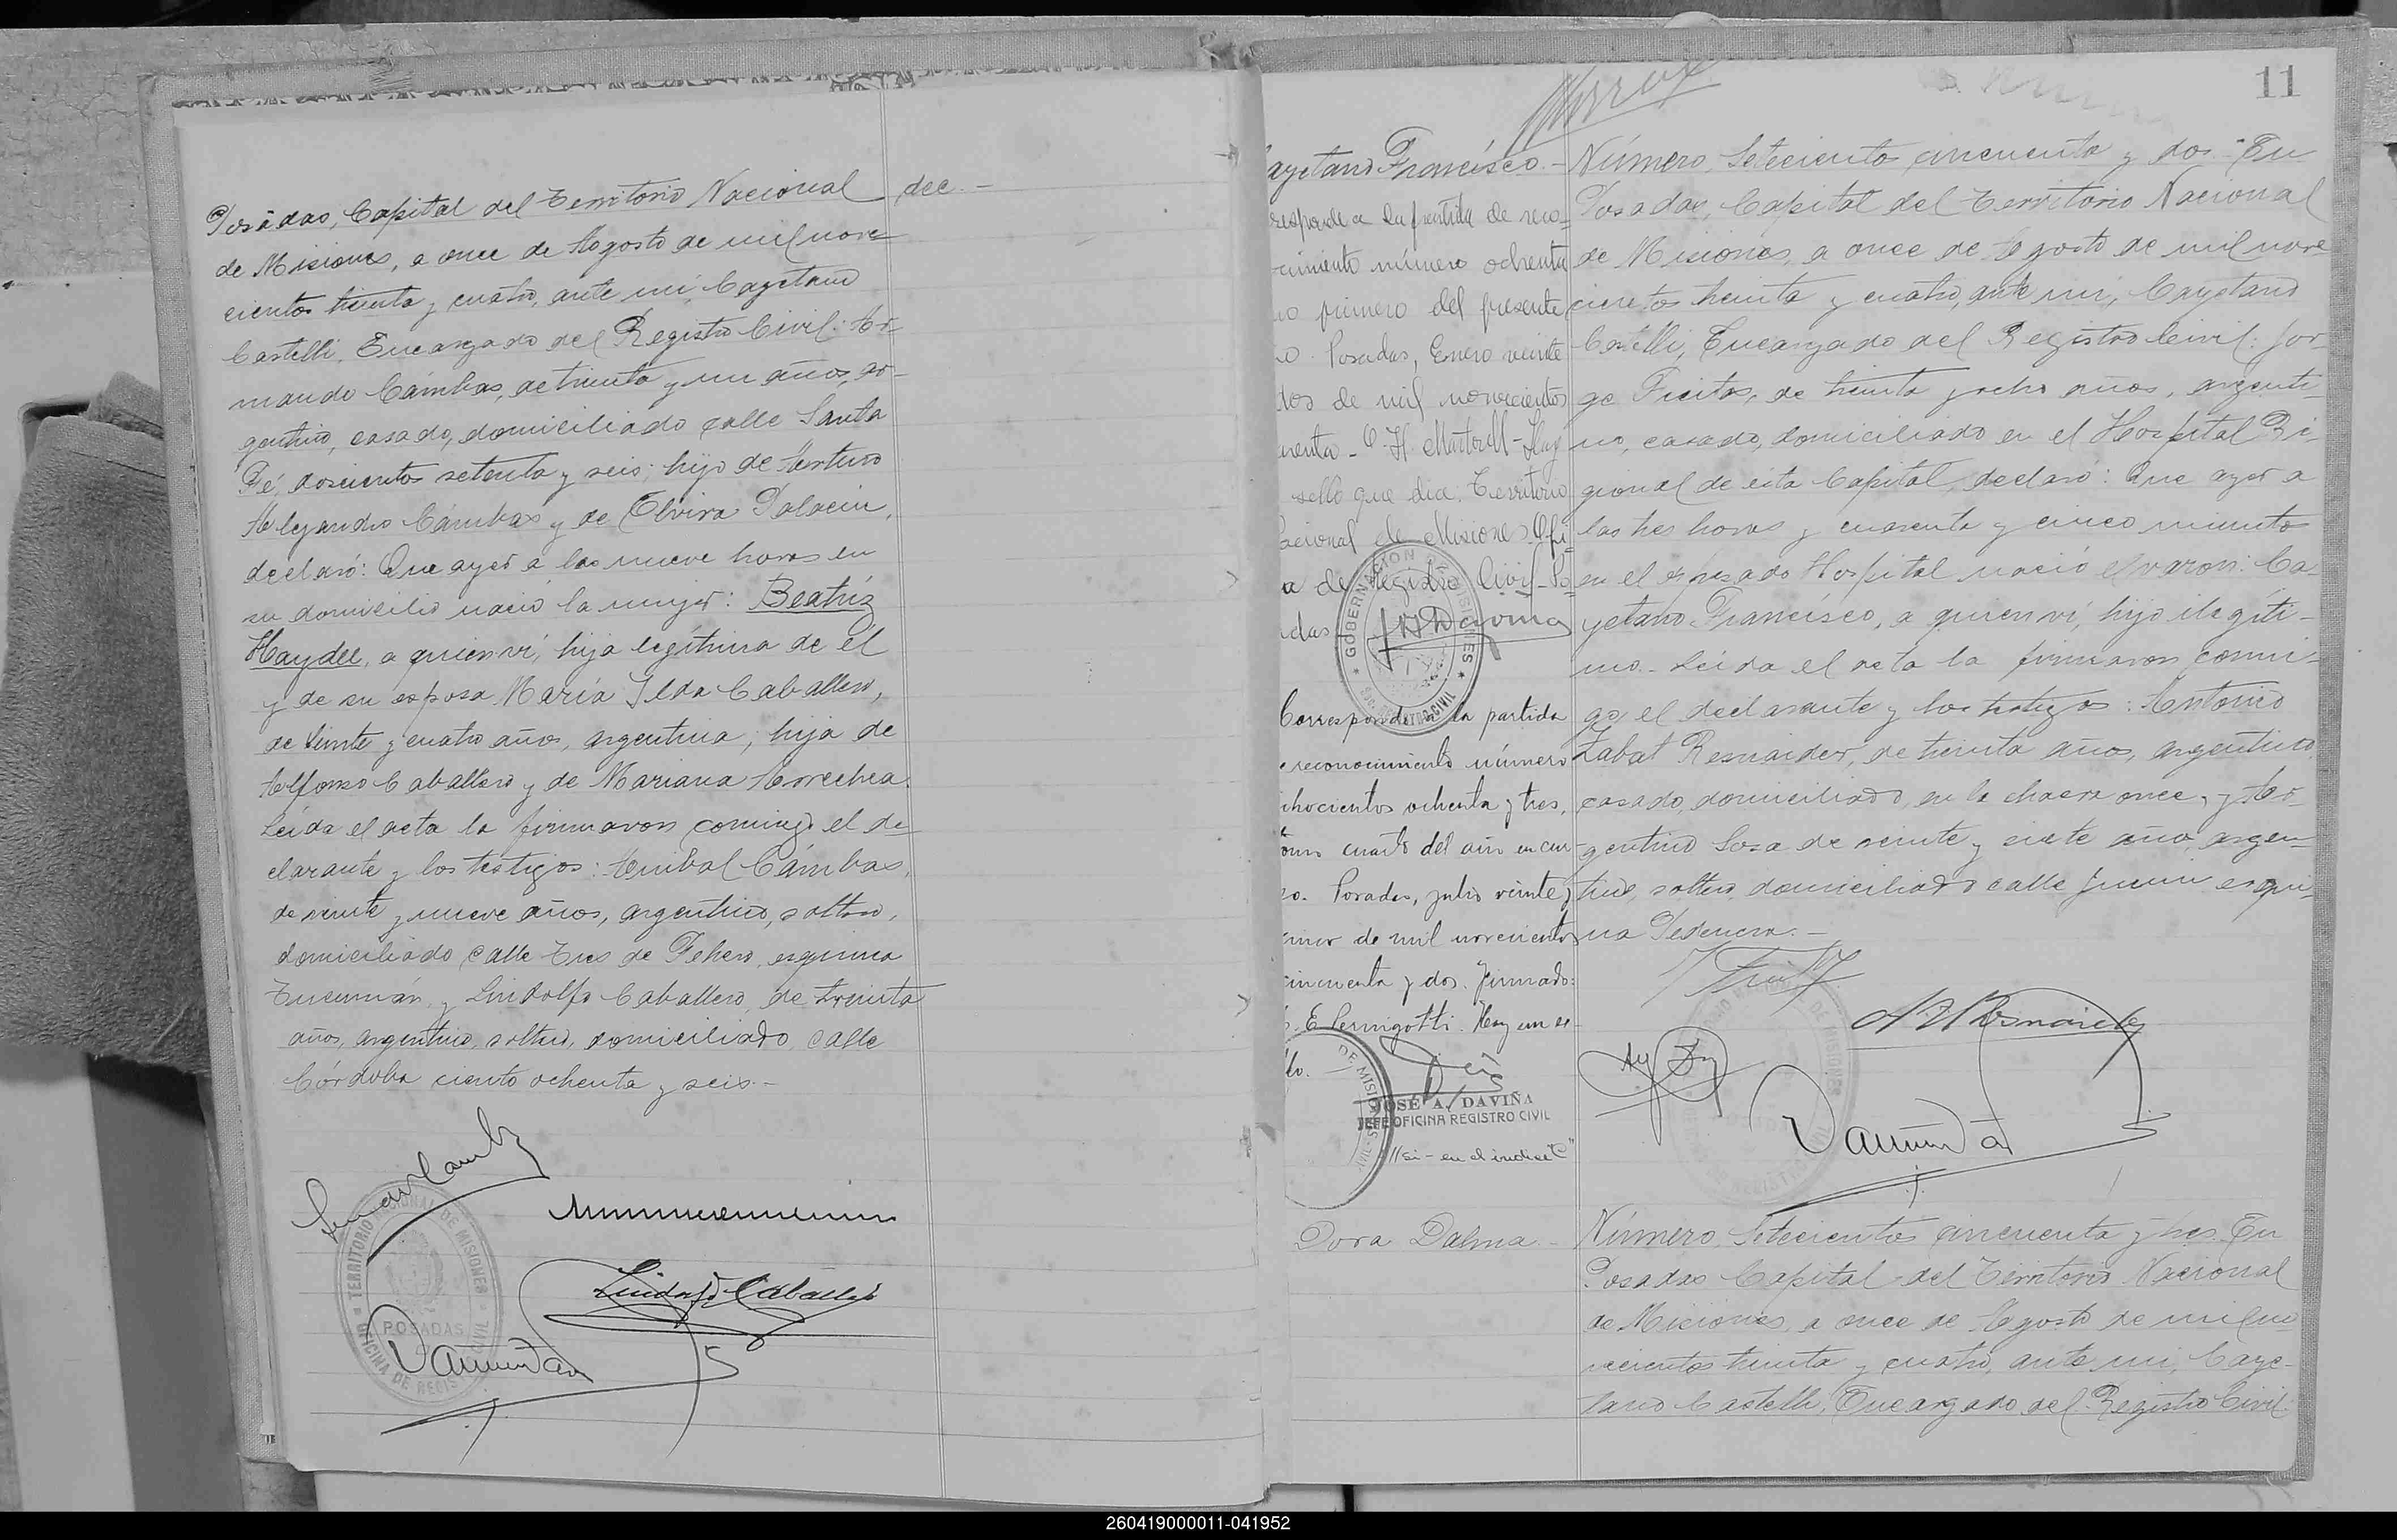 Posadas, Capital del Territorio Nacional
de Misiones, a once de Agosto de mil nove-
cientos treinta y cuatro, ante mi, Cayetano
Castelli, Encargado del Registro Civil: Ar-
mando Cámbas, de treinta y un años, ar-
gentino, casado, domiciliado calle Santa
Fé, doscientos setenta y seis; hijo de Arturo
Alejandro Cámbas y de Elvira Palacin,
declaró: Que ayer a las nueve horas en
su domicilio nació la mujer: Beatríz
Haydee, a quien ví, hija legítima de él
y de su esposa María Ilda Caballero,
de veinte y cuatro años, argentina; hija de
Alfonso Caballero y de Mariana Arrechea.
Leída el acta la firmaron conmigo el de-
clarante y los testigos: Anibal Cámbas,
de veinte y nueve años, argentino, soltero,
domiciliado calle Tres de Febrero, esquina
Tucumán, y Lindolfo Caballero, de treinta
años, argentino, soltero, domiciliado calle
Córdoba ciento ochenta y seis.-
dee.-
TERRITORIO NACIONAL DE MISIONES
POSADAS
OFICINA DE REGISTRO CIVIL
Lindolfo Caballero
11
ayetano Francísco.-
responde a la partida de reco-
cimiento número ochenta
primero del presente
o. Posadas, Enero veinte
dos de mil novecientos
uarenta - Hay
sello que dice. Territorio
acional de Misiones. Ofi-
a de Registro Civil - Po-
adas
GOBERNACION DE MISIONES
REGISTRO CIVIL
Corresponde a la partida
e reconocimiento número
chocientos ochenta y tres,
tomo cuarto del año en cur-
so. Posadas, julio veinte y
cinco de mil novecientos
cincuenta y dos. Firmado:
E. Pernigotti. Hay un se-
llo.
DE MISIONES
JOSÉ A. DAVIÑA
JEFE OFICINA REGISTRO CIVIL
"Si - en el indice C"
Número Setecientos cincuenta y dos.- En
Posadas, Capital del Territorio Nacional
de Misiones, a once de Agosto de mil nove-
cientos treinta y cuatro, ante mi, Cayetano
Castelli, Encargado del Registro Civil: Jor-
ge Freitas, de treinta y ocho años, argenti-
no, casado, domiciliado en el Hospital Re-
gional de esta Capital, declaró: Que ayer a
las tres horas y cuarenta y cinco minutos
en el expresado Hospital nació el varon: Ca-
yetano Francísco, a quien ví, hijo ilegíti-
mo.- Leída el acta la firmaron conmi-
go, el declarante y los testigos: Antonio
Zabat Resnaider, de treinta años, argentino,
casado, domiciliado en la chacra once, y Ar-
gentino Sosa de veinte y siete años, argen-
tino, soltero, domiciliado calle Junin esqui-
na Pedernera.-
Dora Dalma.-
Número Setecientos cincuenta y tres. En
Posadas Capital del Territorio Nacional
de Misiones, a once de Agosto de mil no-
vecientos treinta y cuatro, ante mi, Caye-
tano Castelli, Encargado del Registro Civil:
260419000011-041952